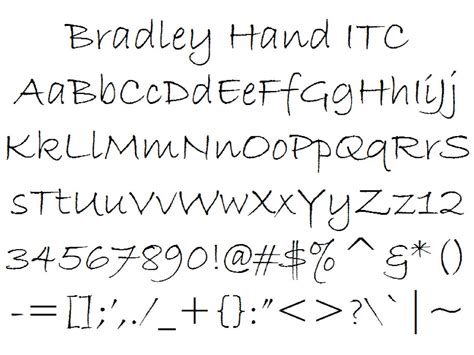 Bradley Hand ITC
AaBbCcDdEeFfGgHhIiJj
KkLlMmNnOoPpQqRrS
sTtUuVvWwXxYyZz12
34567890!@#$%^&*()
-=[];',./_+{}:"<>?\`|~